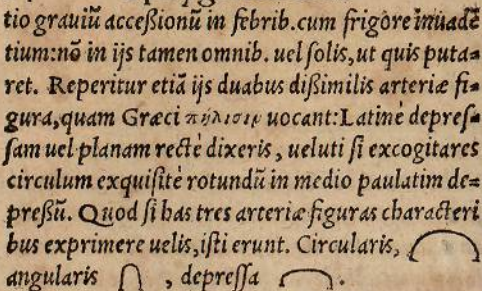 tio grauiũ acceßionũ in febrib.cum frigore inuadẽ
tium:nõ in ijs tamen omnib. uel solis, ut quis puta=
ret. Reperitur etiã ijs duabus dißimilis arteriæ fi=
gura, quam Græci uocant: Latinè depres=
sam uel planam rectè dixeris, ueluti si excogitares
circulum exquisitè rotundũ in medio paulatim de=
preßũ. Quod si has tres arteriæ figuras characteri
bus exprimere uelis, isti erunt. Circularis,
angularis , depressa .